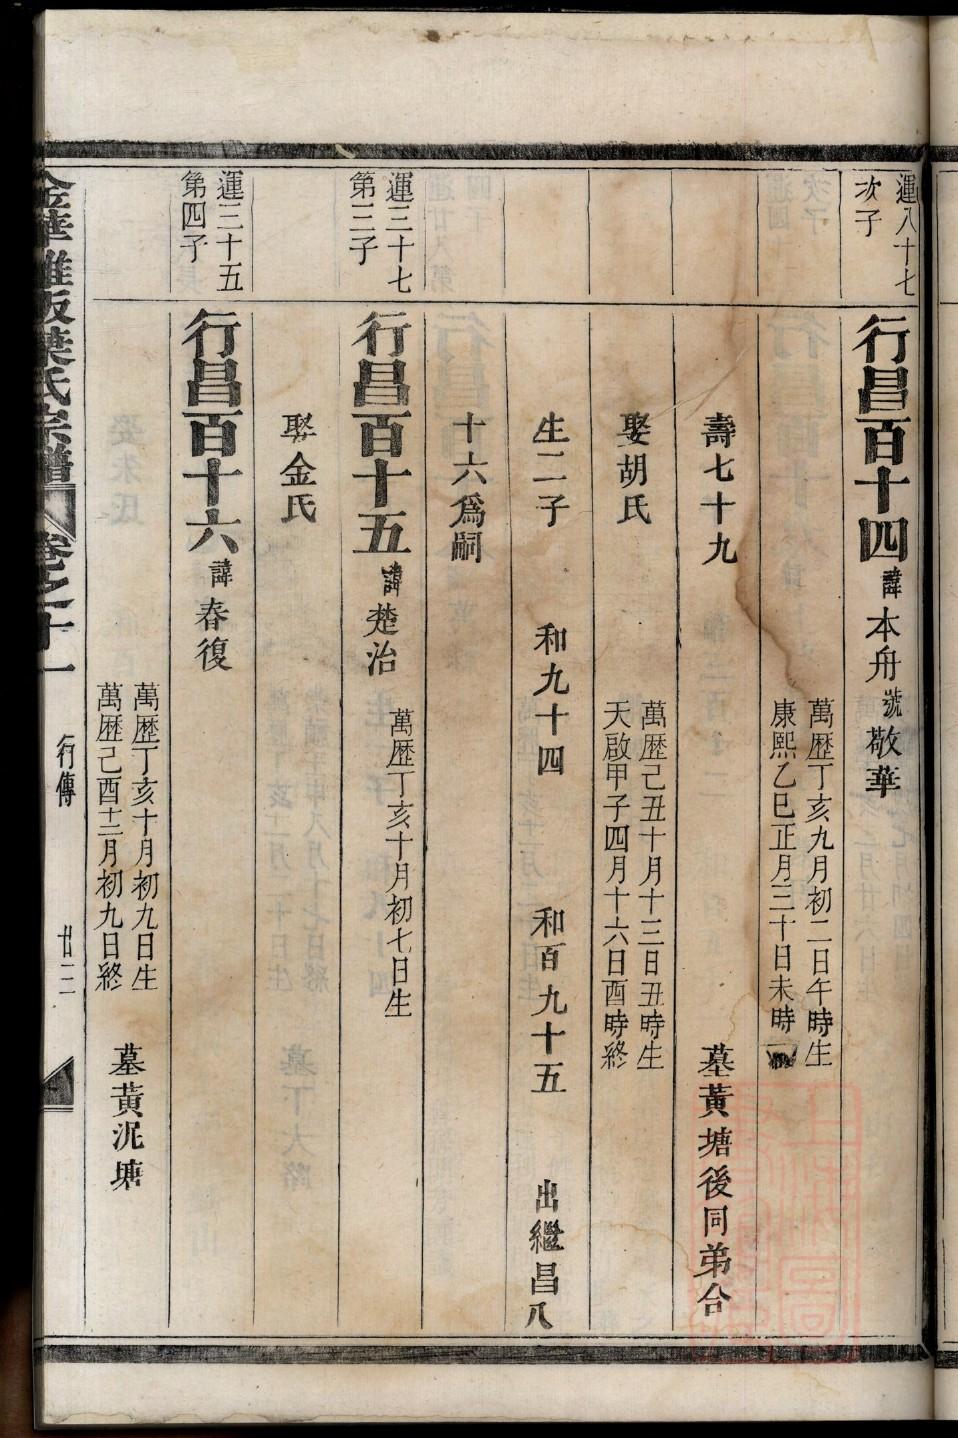 運八十七
次子
行昌百十四 諱本舟號敬華
萬歷丁亥九月初二日午時生
康熙乙巳正月三十日未時
壽七十九 墓黃塘後同弟合
娶胡氏
萬歷己丑十月十三日丑時生
天啟甲子四月十六日酉時終
生二子 和九十四 和百九十五 出繼昌八
十六爲嗣
運三十七
第三子
行昌百十五 諱楚治
萬歷丁亥十月初七日生
娶金氏
運三十五
第四子
行昌百十六 諱春復
萬歷丁亥十月初九日生
萬歷己酉十二月初九日終
墓黃泥塘
葉氏宗譜 卷之十一 行傳 廿三